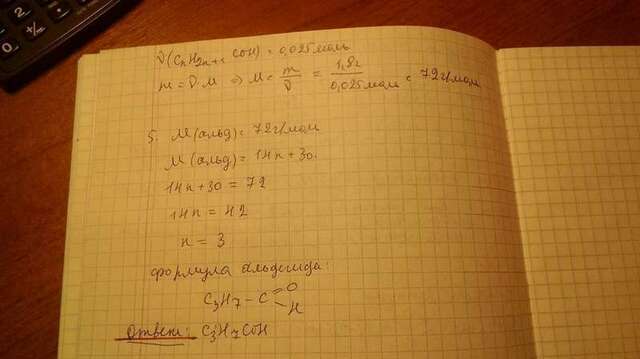 ν(CnH2n+1 COH) = 0,025 моль
m = ν·M ⇒ M = m/ν = 1,8г/0,025моль = 72г/моль
5. M(альд) = 72г/моль
M(альд) = 14n + 30.
14n + 30 = 72
14n = 42
n = 3
формула альдегида:
C3H7 – C =O – H
Ответ: C3H7COH